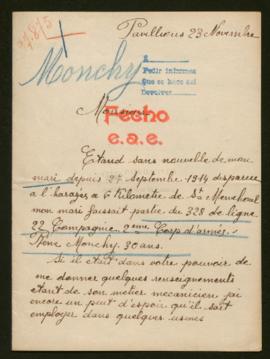 27815
Pavillieus 23 Novembre
Monchy
A
Pedir informes
Que se hace asi
Devolver
Monsieur
Fecho
e.a.e.
Etand sans nouvelle de mon
mari depuis 27 Septembre 1914 desparece
a l'harazee a 6 Kilometre de Ste Menehoul
mon mari faissait partie du 328 de ligne
22 Compagnie 2eme Corp d'armée.
Réné Monchy. 30 ans.
Si il etait dans votre pouvoir de
me donner quelques renseignements
etant de son métier mecanicien jai
encore un peut d'espoir qu'il soit
employer dans quelques usines